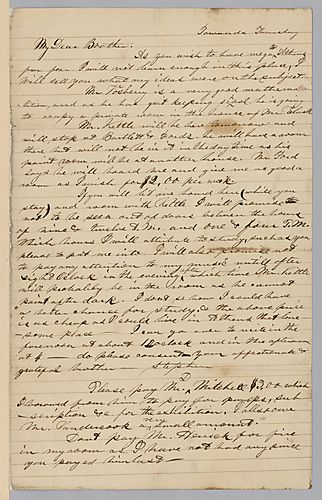 Towanda Thursday
My Dear Brother.
As you wish to have me go to Athens
for fear I will not learn enough in this place, I
will tell you what my ideas were on the subject
Mr. Fosbery is a very good mathema
tician, and as he has quit keeping school he is going
to occupy a private room in the house of Mr. Elwell
Mr. Kettle will be here tomorrow
will stop at Bartlett & Fords. he will have a room
there but will not be in it in the day time as his
paint room will be at another house. Mr. Ford
says he will board me and give me as good a
room as I wish for $2,00 per week
If you will let me board here (while you
stay) and room with Kettle I will promise
not to be seen out of doors between the hours
of nine & twelve A.M. and one & four P.M.
Which hours I will attribute to study, such as you
please to put me into I will also promise not
to pay any attention to until after
eight O'clock in the evening which time Mr. Kettle
will probably be in the room as he cannot
paint after dark. I don't see how I could have
a better chance for study, & the above price
is as cheap as I could board in Athens that love-
-some place I can go over to recite in the
forenoon at about 12 O'clock and in the afternoon
at 4 — do please consent — Your affectionate &
grateful brother — Stephen
Please pay Mr. Mitchell $3.00 which
I borrowed from him to pay for pumps, sub
-scription &c. for the exhibition. I also owe
Mr. Vandercook a very small amount.
Dont pay Mr. Herrick for fire
in my room as I have not had any since
you payed him last —